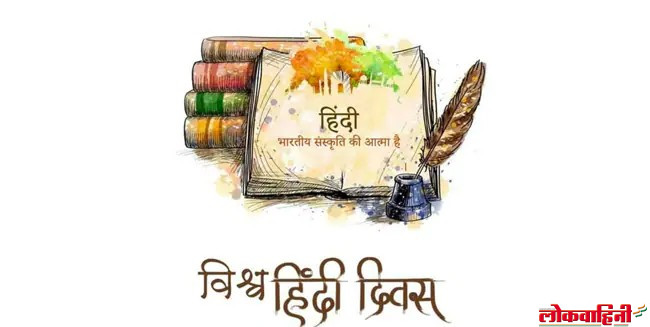 हिंदी
भारतीय संस्कृति की आत्मा है
विश्व हिंदी दिवस
लोकवाहिनी